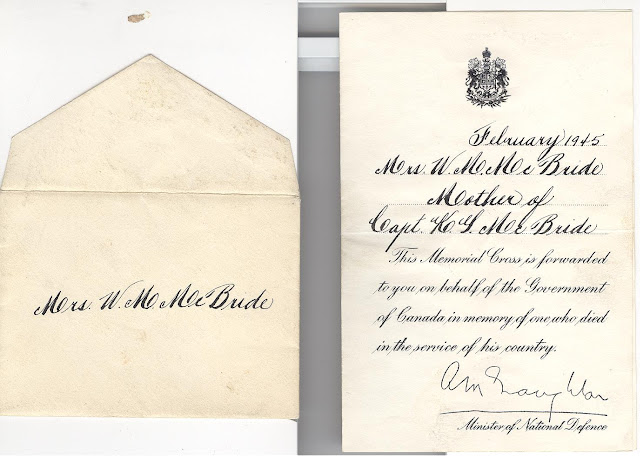 Mrs. W. M. McBride
February 1945
Mrs. W. M. McBride
Mother of
Capt. K. S. McBride
This Memorial Cross is forwarded
to you on behalf of the Government
of Canada in memory of one who died
in the service of his country.
Minister of National Defence